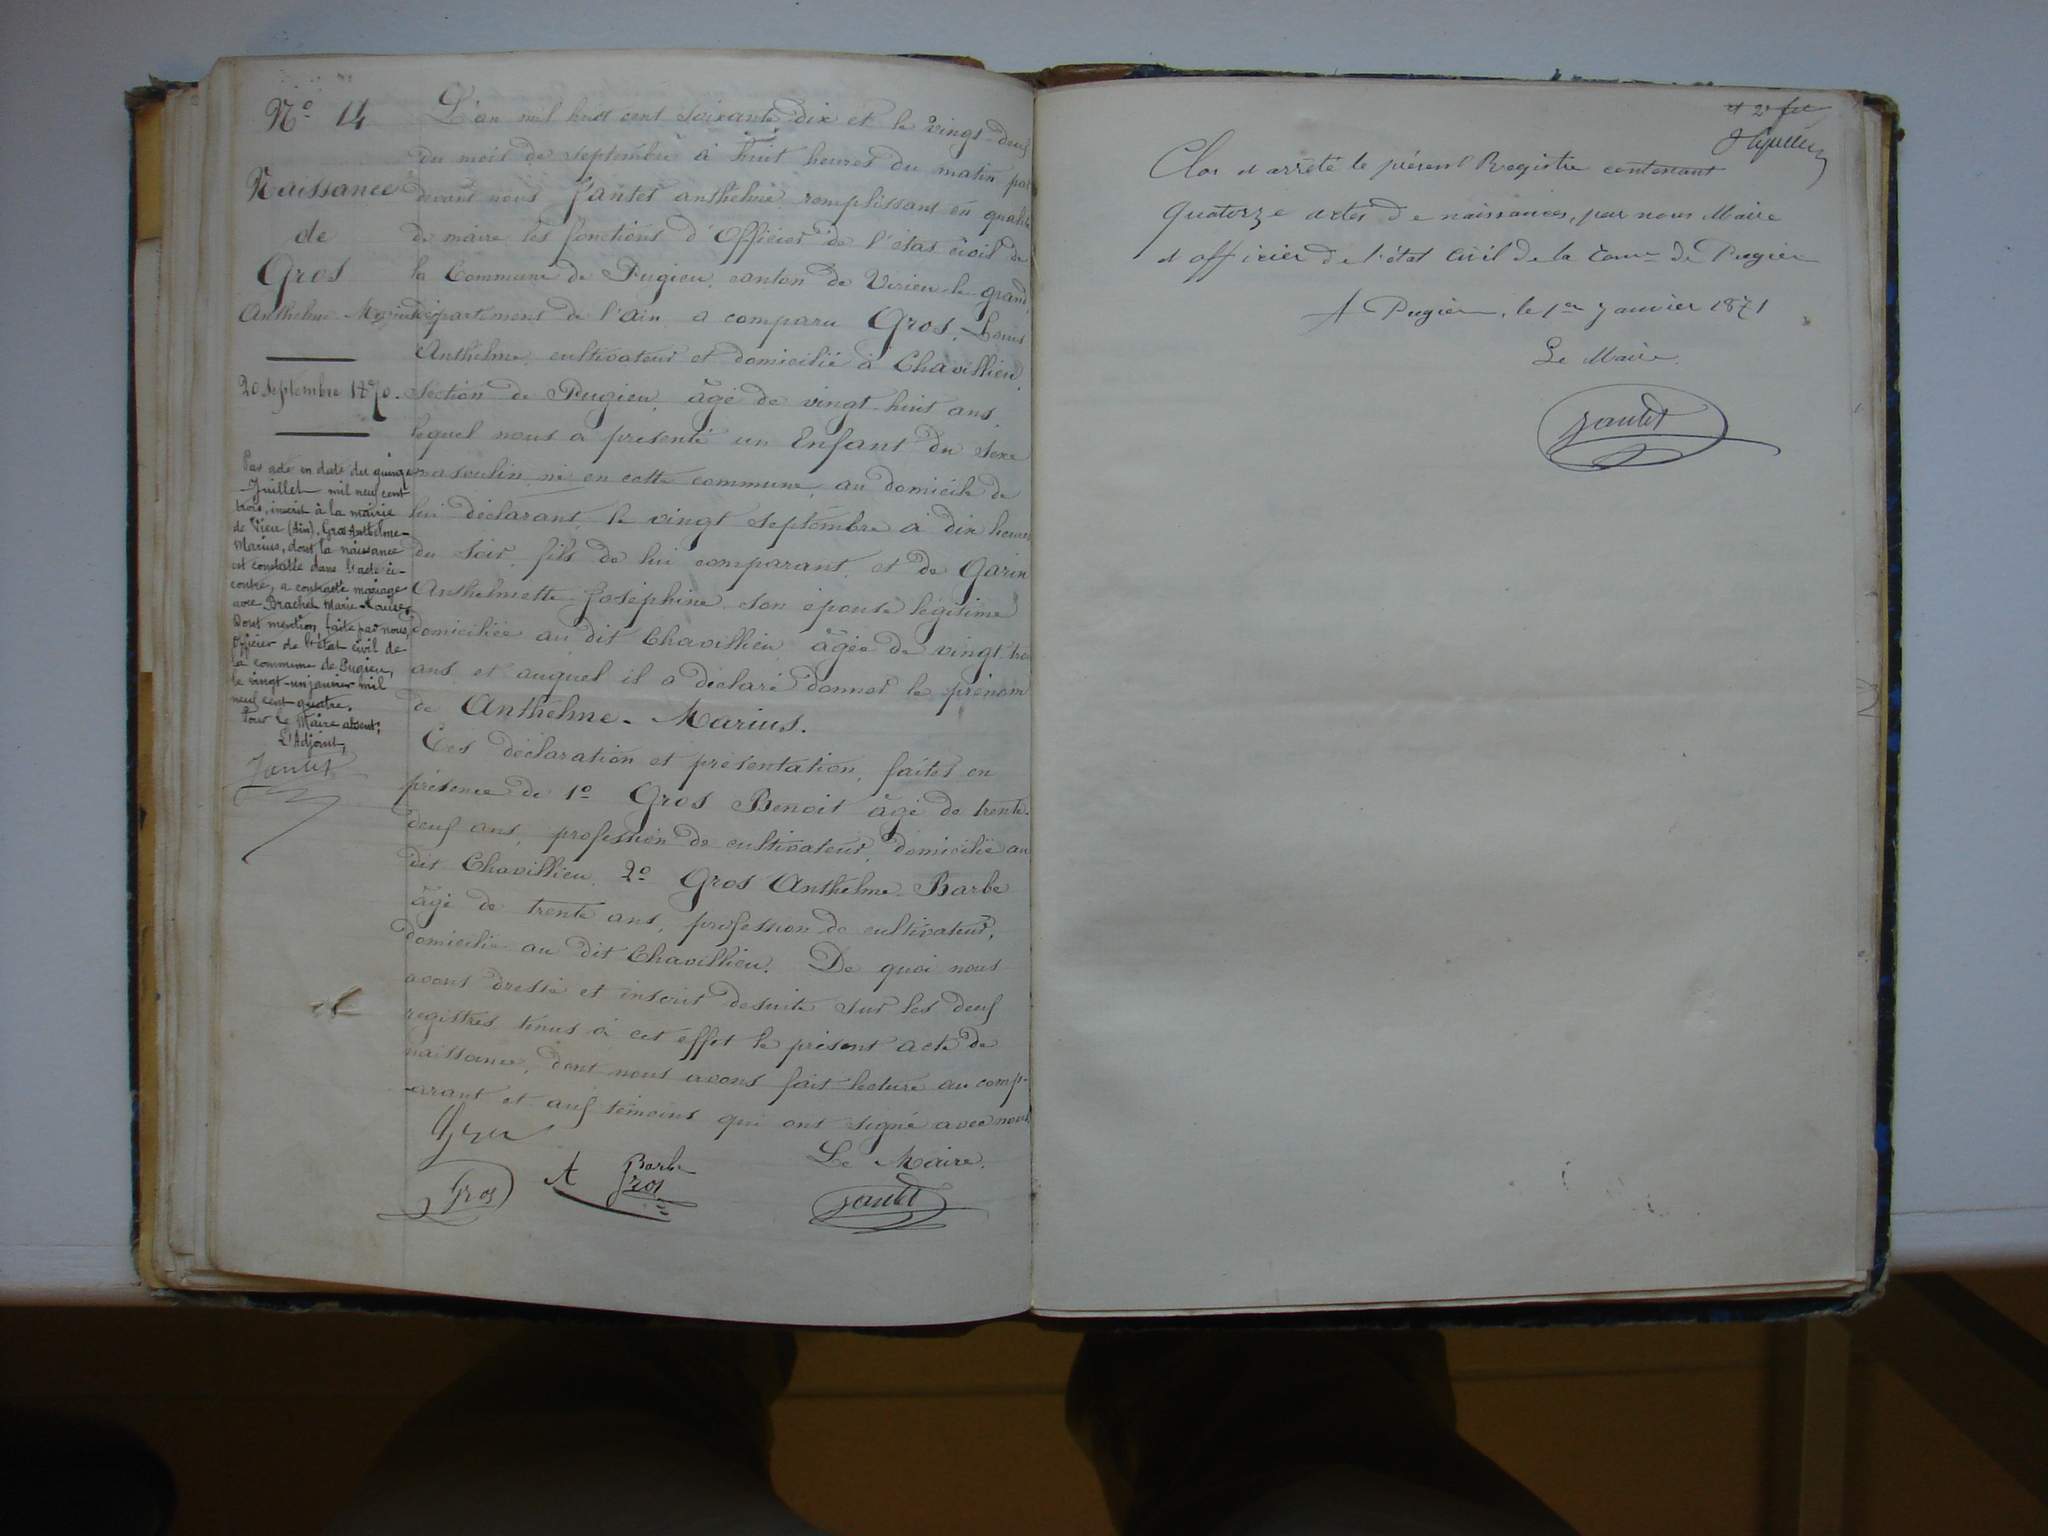 Nº 14
Naissance
de
Gros
Anthelme-Marius
20 Septembre 1870.
Par acte en date du quinze
Juillet mil neuf cent
trois, inscrit à la mairie
de Vieu (Ain), Gros Anthelme-
Marius, dont la naissance
est constatée dans l'acte ci-
contre, a contracté mariage
avec Brachet Marie-Louise,
Dont mention faite par nous,
Officier de l'état civil de
la commune de Pugieu,
le vingt-un janvier mil
neuf cent quatre.
Pour le Maire absent,
L'Adjoint,
L'an mil huit cent soixante dix et le vingt-deux
du mois de septembre à huit heures du matin par
devant nous Jantet anthelme remplissant en qualité
de maire les fonctions d'Officier de l'état civil de
la Commune de Pugieu, canton de Virieu-le-grand,
département de l'ain a comparu Gros, Louis
Anthelme cultivateur et domicilié à Chavillieu,
section de Pugieu, âgé de vingt-huit ans,
lequel nous a présenté un Enfant du sexe
masculin né en cette commune, au domicile de
lui déclarant, le vingt septembre à dix heures
du soir, fils de lui comparant, et de Garin
Anthelmette-Joséphine son épouse légitime
domiciliée au dit Chavillieu âgée de vingt-trois
ans et auquel il a déclaré donner le prénom
de Anthelme-Marius.
Ces déclaration et présentation, faites en
présence de 1º Gros Benoit âgé de trente-
deux ans, profession de cultivateur, domicilié au
dit Chavillieu 2º Gros Anthelme-Barbe
âgé de trente ans, profession de cultivateur,
domicilié au dit Chavillieu. De quoi nous
avons dressé et inscrit desuite sur les deux
registres tenus à cet effet le présent acte de
naissance, dont nous avons fait lecture au comp-
-arant et aux témoins qui ont signé avec nous
Le Maire.
Gros
A Barbe
Gros
Jantet
Clos et arrêté le présent Registre contenant
quatorze actes de naissances, par nous Maire
et officier de l'état civil de la Comne de Pugieu
A Pugieu, le 1er Janvier 1871
Le Maire.
Jantet